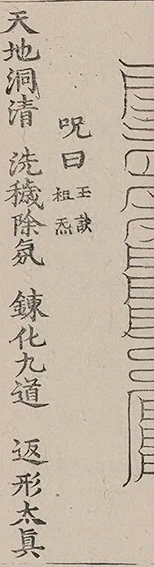 呪曰
訣
祖炁
天地洞清 洗穢除氛 鍊化九道 返形太眞